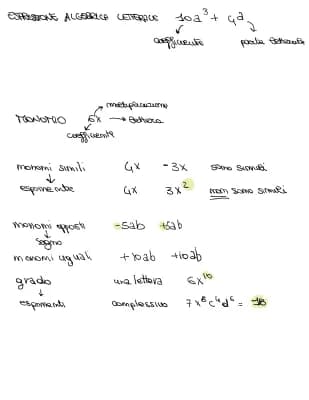 ESPRESSIONE ALGEBRICA LETTERALE 10a³ + 4a
coefficiente parte letterale
moltiplicazione
MONOMIO 6x → lettera
coefficiente
monomi simili 4x -3x sono simili
esponente 4x 3x² non sono simili
monomi opposti -5ab +5ab
segno
monomi uguali +10ab +10ab
grado una lettera 6x¹⁰
esponenti complessivo 7x⁸c⁴d⁶ = 18